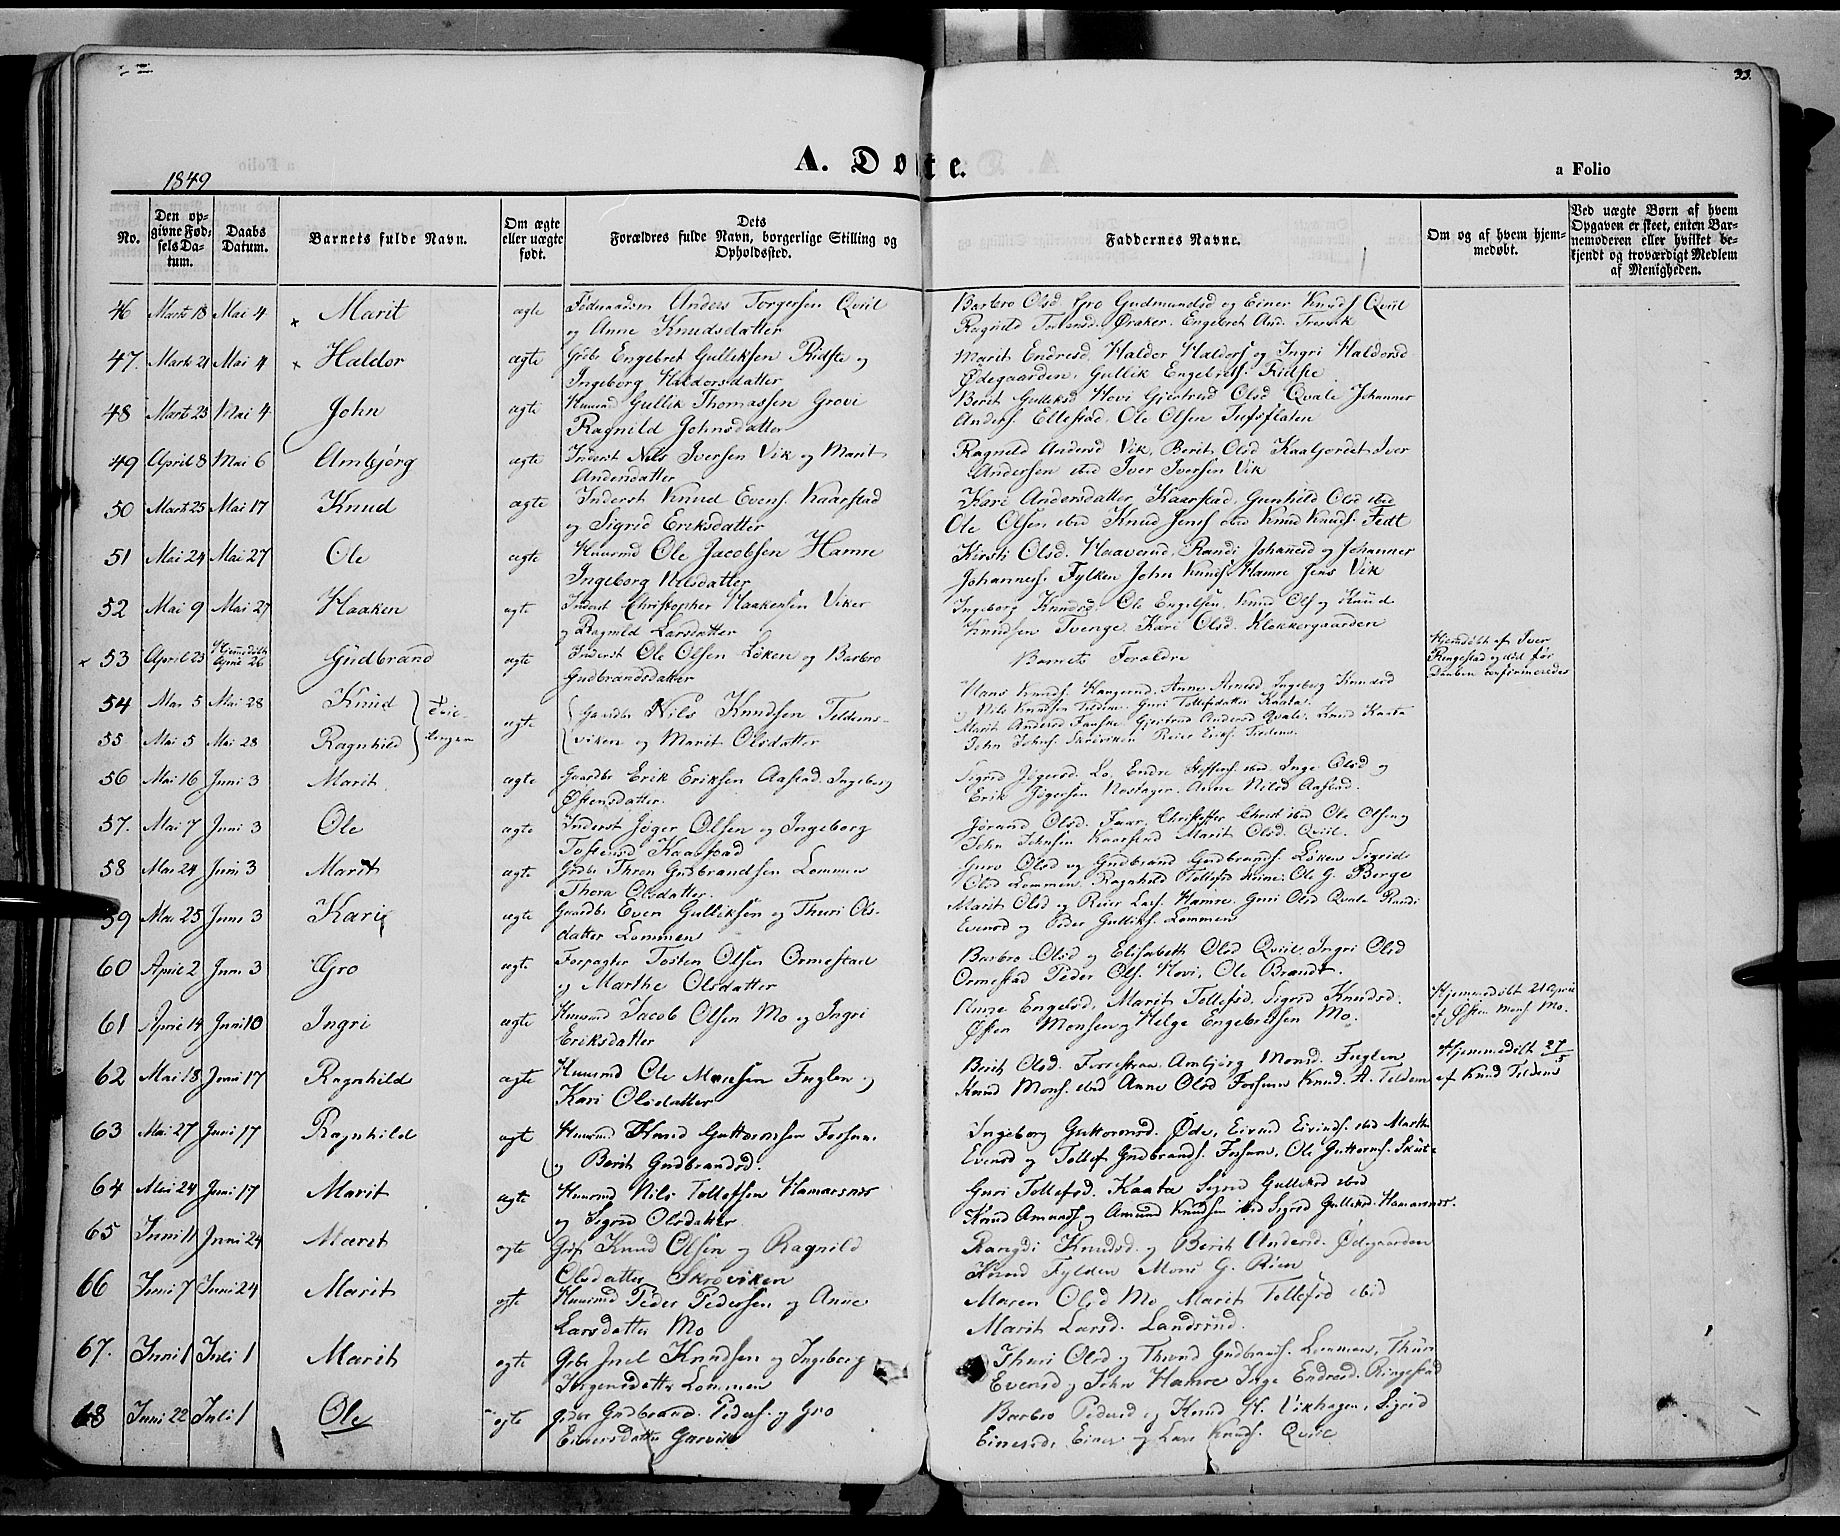 33.
1849
A. Døbte.
a Folio
No.
Den opgivne Fødsels Datum.
Daabs Datum.
Barnets fulde Navn.
Om ægte eller uægte født.
Dets Forældres fulde Navn, borgerlige Stilling og Opholdssted.
Faddernes Navne.
Om og af hvem hjemmedøbt.
Ved uægte Børn af hvem Opgaven er skeet, enten Barnemoderen eller hvilket bekjendt og troværdigt Medlem af Menigheden.
46 Marts 18 Mai 4 Marit ægte Anders Torgersen Qviil Barbro Olsd. Gro Gudmundsd og Einer Knuds Qviil
og Anne Knudsdatter Ragnild
47. Marts 21 Mai 4 Haldor ægte Gdbr Engebret Gulliksen Ridste og Marit Endresd. Haldor Haldors og Ingri Haldorsd
Ingeborg Haldorsdatter Ødegaarden, Gullik Engebrets. Ridste
48 Marts 23 Mai 4 John ægte Huusmd Gullik Thomassen Grovi Berit Gulliksd Hovi Gjertrud Olsd Qvale Johannes
Ragnild Johnsdatter Anders. Ellestad, Ole Olsen Tufsflaten
49 April 8 Mai 6 Ambjörg ægte Inderst Nils Iversen Vik og Marit Ragnild Andersd Vik, Berit Olsd Iver
Andersdatter Andersen ibid Iver Iversen Vik
50 Marts 25 Mai 17 Knud ægte Inderst Knud Evens. Kaarstad Kari Andersdatter Kaarstad, Gunhild Olsd ibid
og Sigrid Eriksdatter Ole Olsen ibid Knud Jens ibid Knud Knuds. Fedt
51 Mai 24 Mai 27 Ole ægte Huusmd Ole Jacobsen Hamre Kirsti Olsd. Randi Johannesd og Johannes
Ingeborg Nilsdatter Johannes. Fylken John Knuds Hamre Jens Vik
52 Mai 9 Mai 27 Haaken ægte Inderst Christopher Haakensen Viker Ingeborg Knudsd. Ole Engelsen, Knud Ols og Knud
og Ragnild Larsdatter Knudsen Tvenge. Kari Olsd. Klokkergaarden
53 April 23 Hjemdöbt April 26 Gudbrand ægte Inderst Ole Olsen Löken og Barbro Barnets Forældre Hjemdöbt af Iver
Gudbrandsdatter Ringestad og död för
Daaben confirmeredes
54 Mai 5 Mai 28 Knud Tvillinger ægte Gaardbr Nils Knudsen Teldens- Hans Knuds. Anne Ingeborg Knudsd
og Nils Knudsen Guri Tollefsdatter Kaata.
55 Mai 5 Mai 28 Ragnhild viken og Marit Olsdatter Marit Andersd Gjertrud Andersd Qvale. Knud Kaata
John Johns. Skreviken Reier Eriks.
56 Mai 16 Juni 3 Marit ægte Gaardbr Erik Eriksen Aastad. Ingeborg Sigrid Jögersd. Lo, Endre ibid Inge Olsd og
Østensdatter. Erik Jögersen Anne Nilsd Aastad.
57. Mai 7 Juni 3 Ole ægte Inderst Jöger Olsen og Ingeborg Jörand Olsd. Christoffer ibid Ole Olsen og
Tostensd Kaarstad John Johnsen Kaarstad Marit Olsd. Qviil.
58 Mai 24 Juni 3 Marit ægte Gdbr Thron Gudbrandsen Lommen Guro Olsd og Gudbrand Gudbrands. Löken Sigrid
Thora Olsdatter. Olsd Lommen. Ragnhild Tollefsd Ole G. Berge
59 Mai 25 Juni 3 Kari ægte Gaardbr Even Gulliksen og Thuri Ols- Marit Olsd og Reier Lars. Hamre. Guri Olsd Qvale Randi
datter Lommen Evensd og Peder Gulliks. Lommen
60 April 2 Juni 3 Gro ægte Forpagter Tosten Olsen Ormestad Barbro Olsd og Elisabeth Olsd Qviil, Ingri Olsd
og Marthe Olsdatter Ormestad Peder Ols. Hovi, Ole Brandt.
61 April 14 Juni 10 Ingri ægte Huusmd Jacob Olsen Mo og Ingri Anne Engelsd, Marit Tollefsd, Sigrid Knudsd. Hjemmedöbt 21 April
Eriksdatter Østen Monsen og Helge Engebretsen Mo. af Østen Mons. Mo.
62 Mai 18 Juni 17 Ragnhild ægte Huusmd Ole Monsen Fuglen og Berit Olsd. Ambjörg Monsd. Fuglen Hjemmedöbt 27/5
Kari Olsdatter Knud Mons. ibid Anne Olsd Fossum Knud A. Teldens af Knud Teldens
63 Mai 27 Juni 17 Ragnhild ægte Huusmd Knud Guttormsen Fossum. Ingeborg Guttormsd. Øde, Eivind Eivinds. ibid Marthe
og Berit Gudbrandsd. Evensd og Tollef Gudbrands. Fossum, Ole Guttorms.
64 Mai 24 Juni 17 Marit ægte Huusmd Nils Tollefsen Hamarsnæs Guri Tollefsd. Kaata Sigrid Gulliksd ibid
og Sigrid Olsdatter. Knud Amunds og Amund Knudsen ibid Sigrid Gulliksd Hamarsnæs.
65 Juni 11 Juni 24 Marit ægte Knud Olsen og Ragnild Rangdi Knudsd. og Berit Andersd. Ødegaarden
Olsdatter Skreviken Knud Fylken Mons G.
66 Juni 7 Juni 24 Marit ægte Huusmd Peder Pedersen og Anne Maren Olsd Mo Marit Tollefsd ibid
Larsdatter Mo Marit Larsd. Landsrud.
67. Juni 1 Juli 1 Marit ægte Gdbr Juel Knudsen og Ingeborg Thuri Olsd og Thrond Gudbrands. Lommen, Thuri
Lommen Evensd og John Hamre Inge Endresd. Ringestad
68 Juni 22 Juli 1 Ole ægte Gdbr Gudbrand Peders. og Gro Barbro Pedersd og Knud H. Vikhagen, Sigrid
Einersdatter Garvik Einersd, Einer og Lars Knuds. Qviil